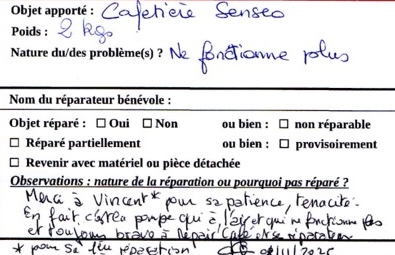 Objet apporté : Cafetière Senseo
Poids : 2 kgs
Nature du/des problème(s) ? Ne fonctionne plus
Nom du réparateur bénévole :
Objet réparé : ☐ Oui ☐ Non ou bien : ☐ non réparable
☐ Réparé partiellement ou bien : ☐ provisoirement
☐ Revenir avec matériel ou pièce détachée
Observations : nature de la réparation ou pourquoi pas réparé ?
Merci à Vincent* pour sa patience, tenacité.
En fait, c'est la pompe qui a l'air et qui ne fonctionne pas
et toujours bravo à Repair Café et se réparation
* pour sa 1ère réparation